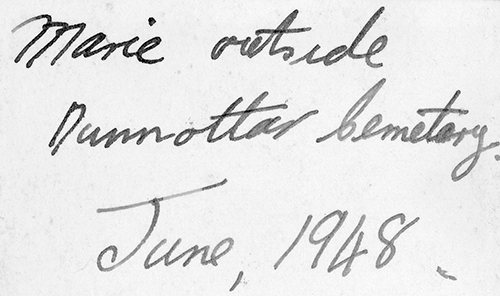 Marie outside
Dunnottar Cemetery.
June, 1948.